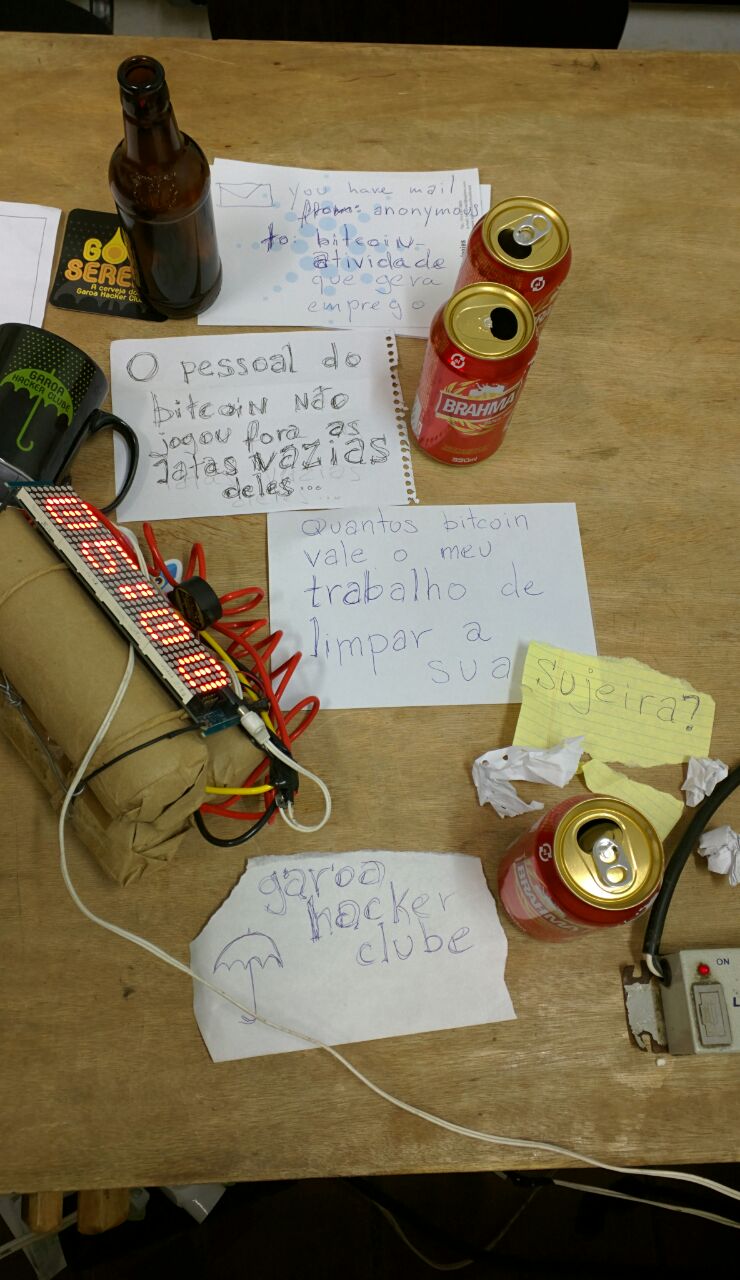 you have mail
from: anonymous
to: bitcoin-
atividade
que gera
emprego
GO
SERE
A cerveja do
Garoa Hacker Clu
GAROA
HACKER CLUBE
O pessoal do
bitcoin não
jogou fora as
latas vazias
deles...
BRAHMA
350ml
Quantos bitcoin
vale o meu
trabalho de
limpar a
sua
sujeira?
BRAHMA
garoa
hacker
clube
ON
L